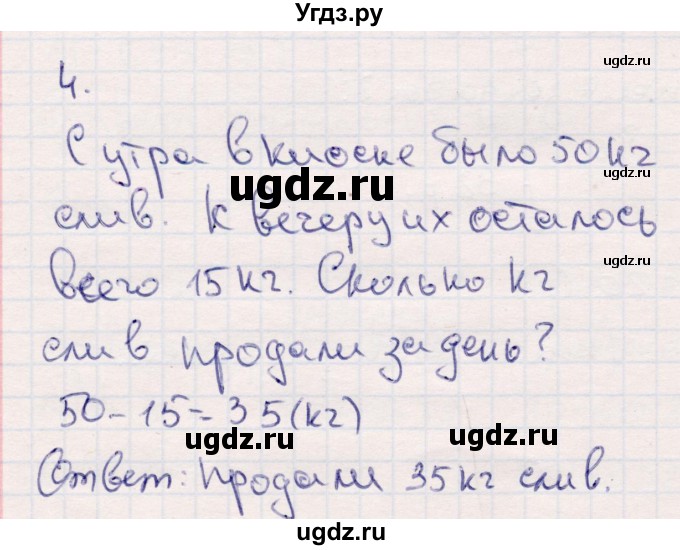 Угдз.ру
ugdz.ru
4.
С утра в киоске было 50 кг
ugdz.ru
ugdz.ru
слив. К вечеру их осталось
всего 15 кг. Сколько кг
ugdz.ru
слив продали за день?
50-15=35(кг)
ugdz.ru
ugdz.ru
Ответ: продали 35 кг слив.
ugdz.ru